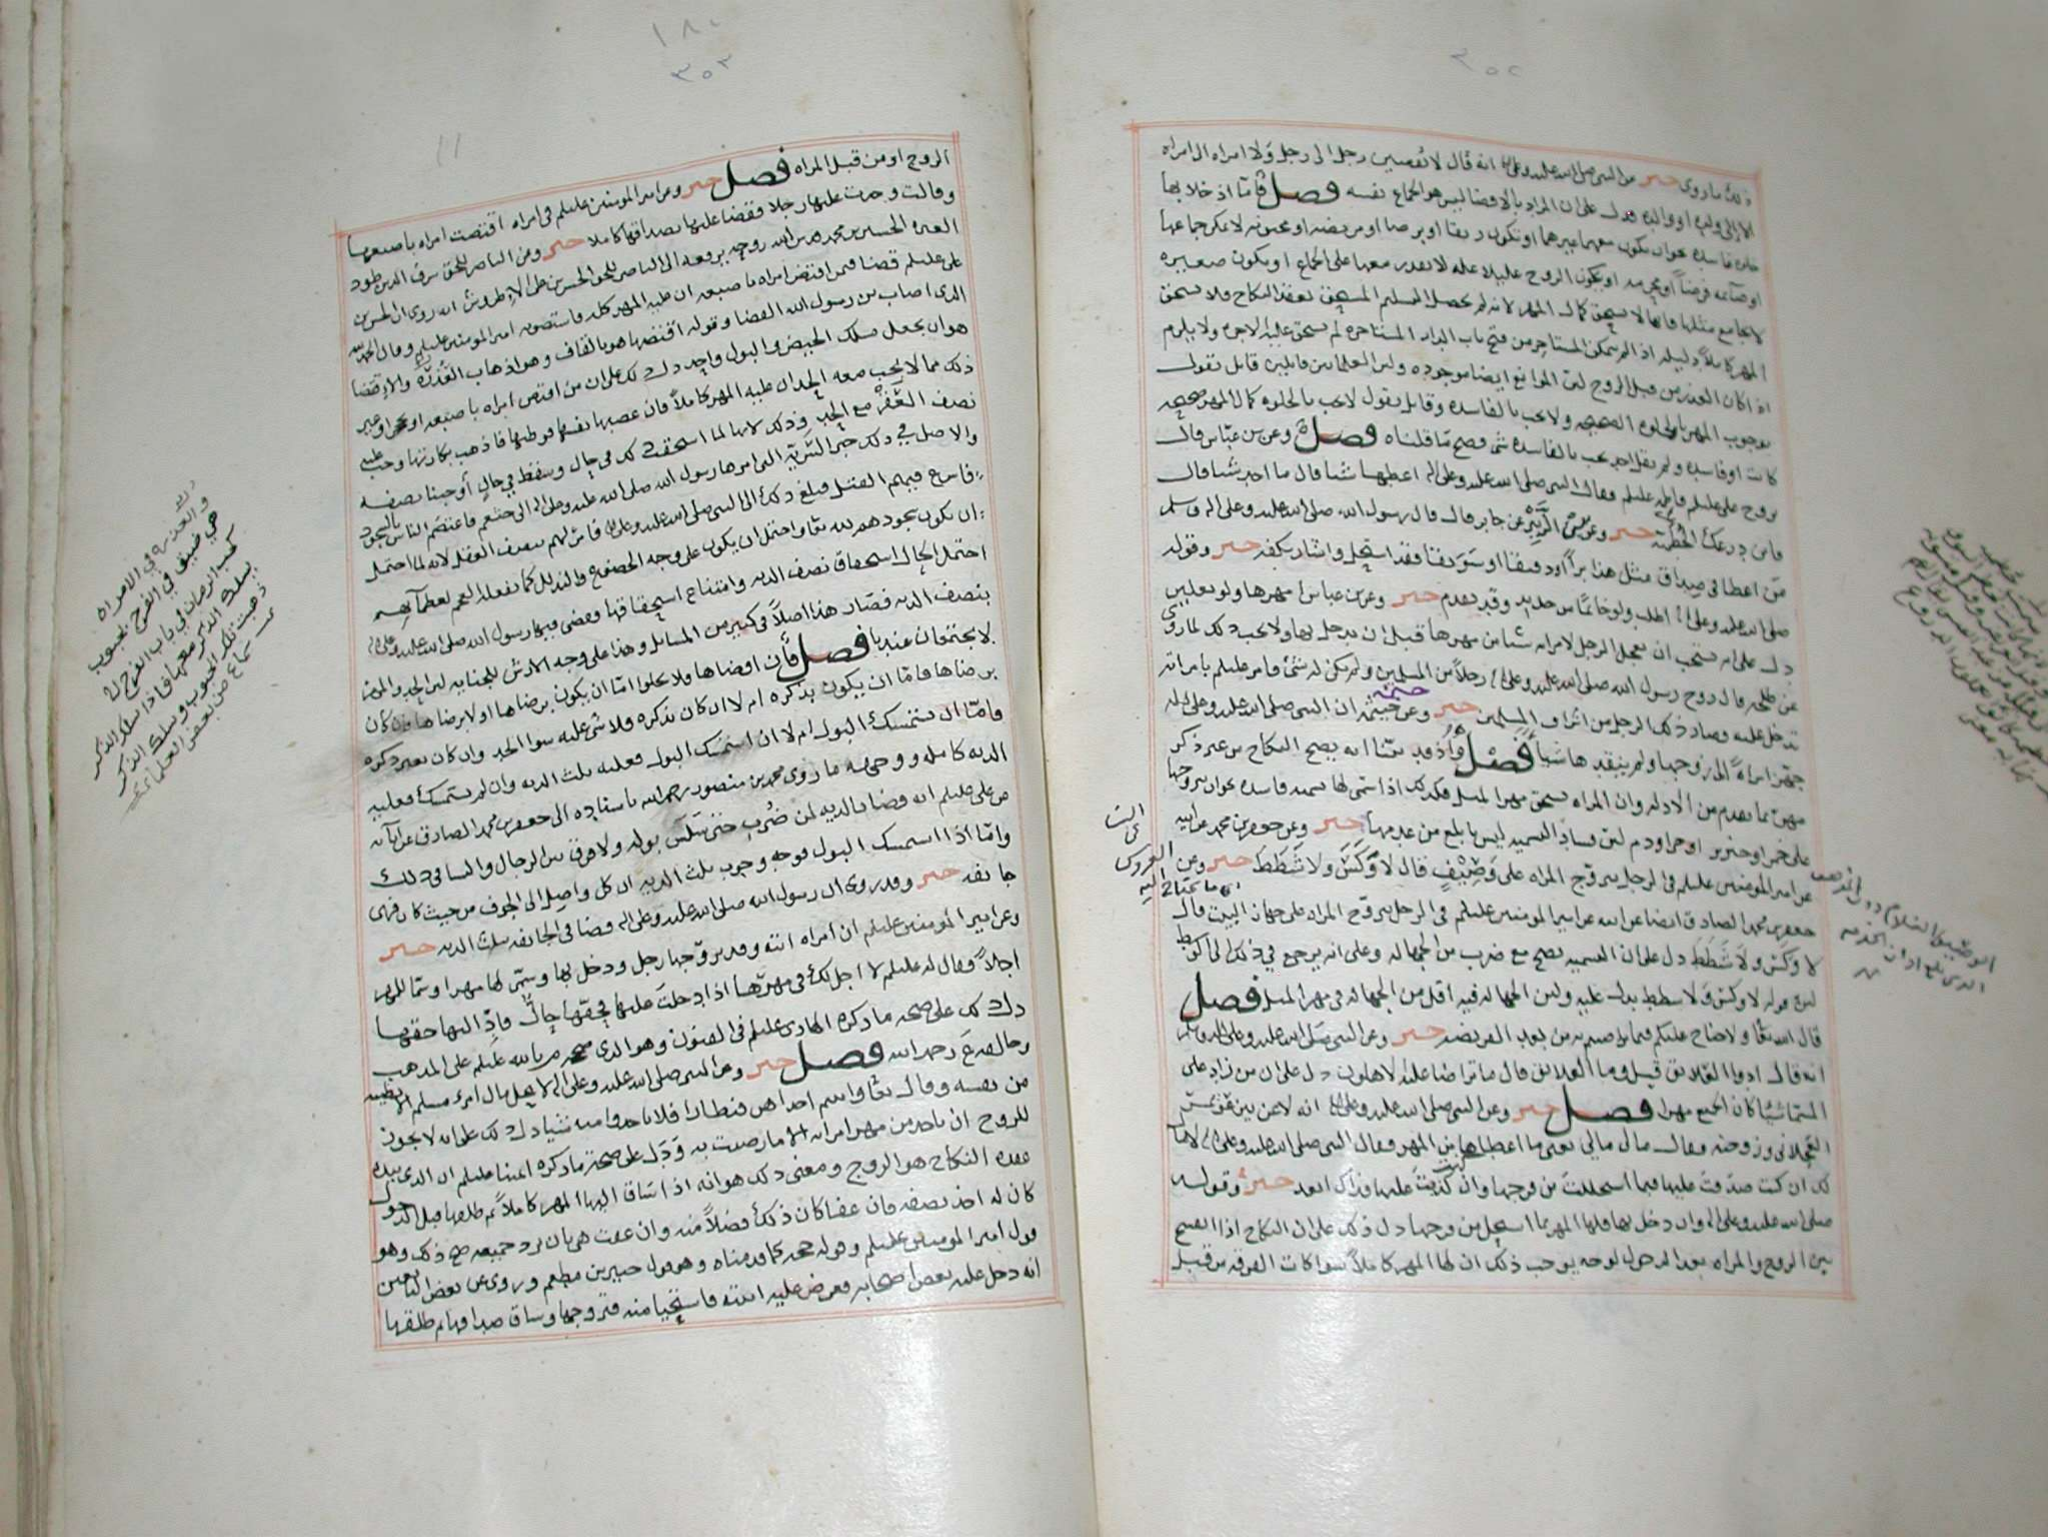 ٣٥٢
ذلك ما روى خبر عن النبي صلى الله عليه وعلى اله انه قال لا يفضين رجل الى رجل ولا امراه الى امراه
الا الى ولده او والده فدل على ان المراد بالافضا ليس هو الجماع نفسه فصل فامّا اذ خلا بها
خلوه فاسده نحو ان يكون معهما غيرهما او تكون رتقا او برصا او مريضه او مجنونه لا يمكن جماعها
او صائمه فرضاً او محرمه او يكون الزوج عليلا عله لا يقدر معها على الجماع او يكون صغيره
لا يجامع مثلها فانها لا تستحق كمال المهر لانه لم يحصل التسليم المستحق بعقد النكاح ولا تستحق
المهر كاملاً دليله اذا لم يمكن المستاجر من فتح باب الدار المستاجره لم تستحق عليه الاجره ولا يلزم
اذا كان العذر من قبل الزوج لان الموانع ايضا موجوده ولان العلما بين قايلين قايل يقول
بوجوب المهر بالخلوه الصحيحه ولا يجب بالفاسده وقايل يقول لا يجب بالخلوه كمال المهر صحيحه
كانت او فاسده ولم يقل احد يجب بالفاسده شي فصح ما قلناه فصل وعن بن عباس قال
تزوج علي عليلم فاطمه عليلم فقال النبي صلى الله عليه وعلى اله اعطها شيا قال ما اجد شيا قال
فاين درعك الحطميه خبر وعن الزبير عن جابر قال قال رسول الله صلى الله عليه وعلى اله وسلم
من اعطا في صداق مثل هذا براً او دقيقا او سويقا فقد استحل واشار بكفه خبر وقوله
صلى الله عليه وعلى اله اطلب ولو خاتما من حديد وقد تقدم خبر وعن بن عباس مهرها ولو نعلين
دل على انه يستحب ان يعجل الرجل لامراته شيا من مهرها قبل ان يدخل بها ولا يجب ذلك لما روى
عن طلحه قال زوج رسول الله صلى الله عليه وعلى اله رجلاً من المسلمين ولم يكن له شي فامر عليلم بامراته
تدخل عليه وصار ذلك الرجل من اشراف المسلمين خبر وعن خيثمه ان النبي صلى الله عليه وعلى اله
جهز امراهً الى زوجها ولم ينقدها شيا فصل واذ قد بينا انه يصح النكاح من غير ذكر
مهر بما تقدم من الادله وان المراه تستحق مهر المثل فكذلك اذا سمى لها تسميه فاسده نحو ان يتزوجها
على خمر او خنزير او حر او دم لان فساد التسميه ليس بابلغ من عدمها خبر وعن جعفر بن محمد عن ابيه
عن امير المومنين عليلم في الرجل يتزوج المراه على وصيف قال لا وكس ولا شطط خبر وعن
جعفر بن محمد الصادق ايضا عن ابيه عن امير المومنين عليلم في الرجل يتزوج المراه على جهاز البيت قال
لا وكس ولا شطط دل على ان التسميه تصح مع ضرب من الجهاله وعلى انه يرجع في ذلك الى الوسط
لان قوله لا وكس ولا شطط يدل عليه ولان الجهاله فيه اقل من الجهاله في مهر المثل فصل
قال الله تعا ولا جناح عليكم فيما تراضيتم به من بعد الفريضه خبر وعن النبي صلى الله عليه وعلى اله وسلم
انه قال ادوا العلايق قيل وما العلايق قال ما تراضا عليه الاهلون دل على ان من زاد على
المسمّا شيا كان الجميع مهرا فصل خبر وعن النبي صلى الله عليه وعلى اله انه لاعن بين عويمر
العجلاني وزوجته فقال مال مالي يعني ما اعطاها من المهر فقال النبي صلى الله عليه وعلى اله لا مال
لك ان كنت صدقت عليها فبما استحللت من فرجها وان كنت كذبت عليها فذاك ابعد خبر وقوله
صلى الله عليه وعلى اله وان دخل بها فلها المهر بما استحل من فرجها دل ذلك على ان النكاح اذا انفسخ
بين الزوج والمراه بعد الدخول لوجه يوجب ذلك ان لها المهر كاملاً سوا كانت الفرقه من قبل
١٨٠
٣٥٣
الزوج او من قبل المراه فصل خبر وعن امير المومنين عليلم في امراه اقتضت امراه باصبعها
وقالت وجدت عليها رجلا فقضا عليها بصداقها كاملا خبر ومن الناصر للحق شرف الدين
العتره الحسين بن محمد قدس الله روحه يرفعه الى الناصر للحق الحسن بن علي الاطروش انه روى ان الحسن بن
علي عليلم قضا فيمن اقتض امراه باصبعه ان عليه المهر كله فاستصوبه امير المومنين عليلم وقال الحمد لله
الذي اصاب بن رسول الله القضا وقوله اقتضها هو بالقاف وهو اذهاب العُذره والافضا
هو ان يجعل مسلك الحيض والبول واحد دل ذلك على ان من اقتض امراه باصبعه او بحجر او غير
ذلك مما لا يجب معه الحد ان عليه المهر كاملاً فان غصبها نفسها فوطئها فاذهب بكارتها وجب عليه
نصف العُقر مع الحد وذلك لانها لما استحقت كله في حال وسقط في حال اوجبنا نصفه
والاصل في ذلك خبر السّريه التي امرها رسول الله صلى الله عليه وعلى اله الى خثعم فاعتصم الناس بالسجود
فاسرع فيهم القتل فبلغ ذلك الى النبي صلى الله عليه وعلى اله فامر لهم بنصف العقل لانه لما احتمل
ان يكون سجودهم لله تعا واحتمل ان يكون على وجه الخضوع والتذلل كما تفعله العجم لعظمائهم
احتمل الحال استحقاق نصف الديه وامتناع استحقاقها فقضى فيها رسول الله صلى الله عليه وعلى اله
بنصف الديه فصار هذا اصلاً في كثير من المسائل وهذا على وجه الارش للجنايه لان الحد والمهر
لا يجتمعان عندنا فصل فان افضاها فلا يخلوا امّا ان يكون برضاها او لا برضاها فان كان
برضاها فامّا ان يكون بذكره ام لا ان كان بذكره فلا شي عليه سوا الحد وان كان بغير ذكره
فامّا ان تستمسك البول ام لا ان استمسك البول فعليه ثلث الديه وان لم يستمسك فعليه
الديه كامله ووجهه ما روى محمد بن منصور رحمه الله باسناده الى جعفر بن محمد الصادق عن ابائه
عن علي عليلم انه قضا بالديه لمن ضُرب حتى سلس بوله ولا فرق بين الرجال والنسا في ذلك
وامّا اذا استمسك البول فوجه وجوب ثلث الديه ان كل واصل الى الجوف من حيث كان فهي
جائفه خبر وقد روى ان رسول الله صلى الله عليه وعلى اله قضا في الجائفه بثلث الديه خبر
وعن امير المومنين عليلم ان امراه اتته وقد تزوجها رجل ودخل بها وسمّى لها مهرا وسمّا للمهر
اجلاً فقال له عليلم لا اجل لك في مهرها اذا دخلت عليها فحقها حالٌّ فادِّ اليها حقها
دل ذلك على صحه ما ذكره الهادي عليلم في الفنون وهو الذي صححه م بالله عليلم على المذهب
وخالفه ع رحمه الله فصل خبر وعن النبي صلى الله عليه وعلى اله لا يحل مال امرء مسلم الا بطيبه
من نفسه وقال تعا واتيتم احداهن قنطارا فلا تاخذوا منه شيا دل ذلك على انه لا يجوز
للزوج ان ياخذ من مهر امراته الا ما رضيت به ودل على صحة ما ذكره ائمتنا عليلم ان الذي بيده
عقده النكاح هو الزوج ومعنى ذلك هو انه اذا ساق اليها المهر كاملاً ثم طلقها قبل الدخول
كان له اخذ نصفه فان عفا كان ذلك فضلاً منه وان عفت هي بان ترد جميعه صح ذلك وهو
قول امير المومنين عليلم وقوله حجه كما قدمناه وهو قول جبير بن مطعم وروى عن بعض التابعين
انه دخل عليه بعض اصحابه فعرض عليه ابنته فاستحيا منه فتزوجها وساق صداقها ثم طلقها
والعذره في الامراه
هي ضيق في الفرج بحبوب
كحب الرمان في باب الفرج لا
يسلك الذكر معها فاذا سلك الذكر
ذهبت تلك الحبوب وسلك الذكر
سماع من بعض العلماء